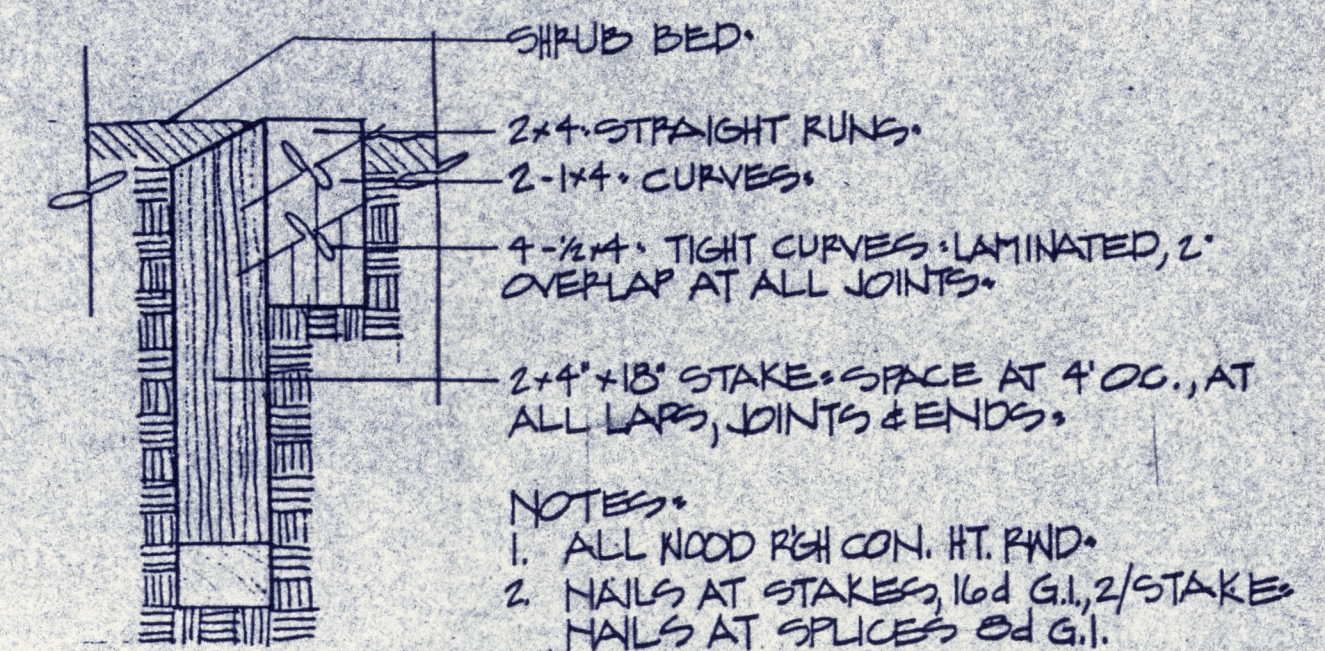 SHRUB BED.
2x4. STRAIGHT RUNS.
2-1x4. CURVES.
4-½x4. TIGHT CURVES: LAMINATED, 2"
OVERLAP AT ALL JOINTS.
2x4"x18" STAKE: SPACE AT 4' O.C., AT
ALL LAPS, JOINTS & ENDS.
NOTES:
1. ALL WOOD R'GH CON. HT. RWD.
2. NAILS AT STAKES, 16d G.I., 2/STAKE.
NAILS AT SPLICES 8d G.I.